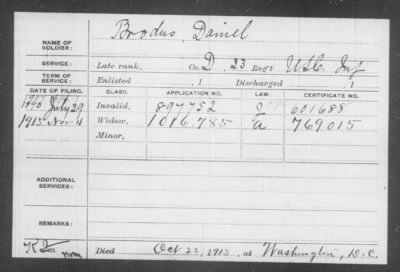 NAME OF SOLDIER: Brodus, Daniel
SERVICE: Late rank, Co. D, 23 Reg't U.S.C. Inf
TERM OF SERVICE: Enlisted , 1 Discharged , 1
DATE OF FILING. CLASS. APPLICATION NO. LAW. CERTIFICATE NO.
July 29 Invalid, 897752 601688
1913 Nov 4 Widow, 1016.785 a 769015
Minor,
ADDITIONAL SERVICES:
REMARKS:
Died Oct 22, 1913, at Washington, D.C.